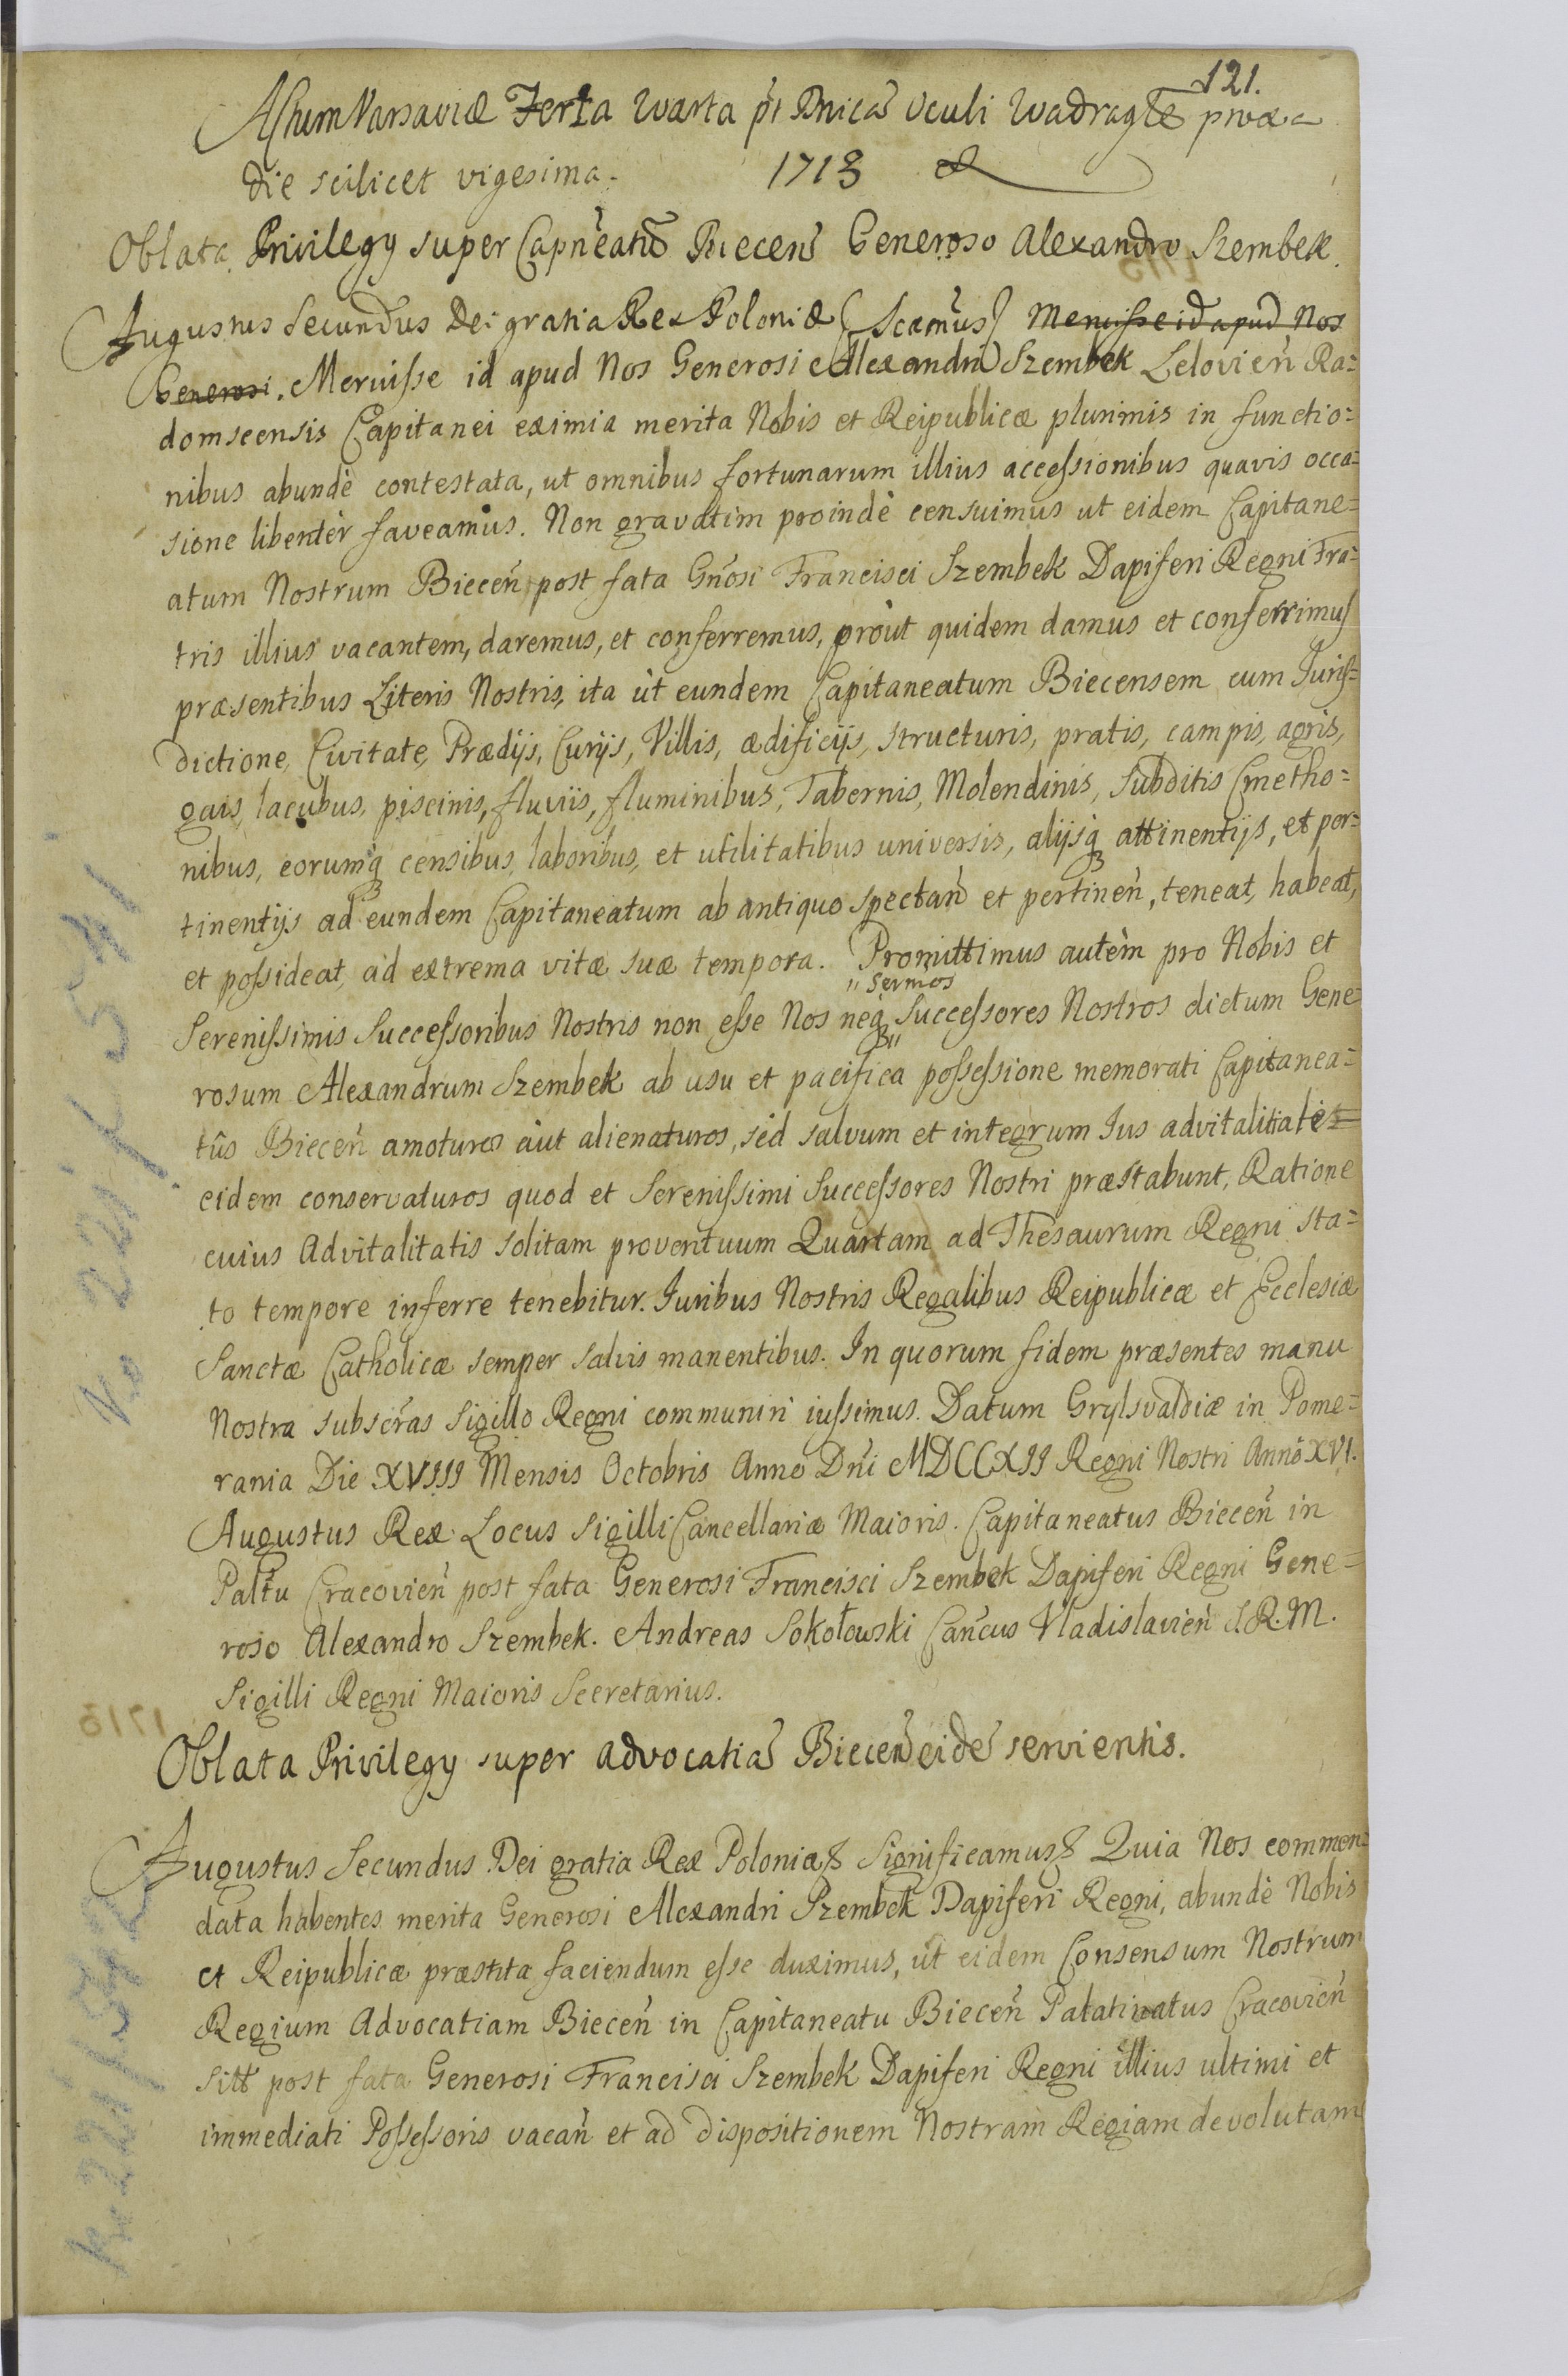 121.
Actum Varsaviæ Feria Quarta pt Dnicã Oculi Quadragle prox
die scilicet vigesima. 1713
Oblata Privilegy super Capneatũ Biecen̄ Generoso Alexandro Szembek.
Augustus Secundus Dei gratia Rex Poloniæ (Scamus) Meruisse id apud Nos
Generosi. Meruisse id apud Nos Generosi Alexandri Szembek Lelovien̄ Ra=
domscensis Capitanei eximia merita Nobis et Reipublicæ plurimis in functio=
nibus abundè contestata, ut omnibus fortunarum illius accessionibus quavis occa=
sione libentèr faveamus. Non gravatim proindè censuimus ut eidem Capitane=
atum Nostrum Biecen̄ post fata Gnosi Francisci Szembek Dapiferi Regni Fra=
tris illius vacantem, daremus, et conferremus, proùt quidem damus et conferrimus
præsentibus Literis Nostris, ita ùt eundem Capitaneatum Biecensem cum Juris=
dictione, Civitate, Prædijs, Curijs, Villis, ædificijs, structuris, pratis, campis, agris,
gais, lacubus, piscinis, fluviis, fluminibus, Tabernis, Molendinis, Subditis Cmetho=
nibus, eorumq censibus, laboribus, et utilitatibus universis, alijsq attinentijs, et per=
tinentijs ad eundem Capitaneatum ab antiquo spectan̄ et pertinen̄, teneat, habeat,
et possideat, ad extrema vitæ suæ tempora. Promittimus autèm pro Nobis et
"Sermos
Serenissimis Successoribus Nostris non esse Nos neq" Successores Nostros dictum Gene=
rosum Alexandrum Szembek ab usu et pacifica possessione memorati Capitanea=
tûs Biecen̄ amoturos aùt alienaturos, sed salvum et integrum Ius advitalitatis
eidem conservaturos quod et Serenissimi Successores Nostri præstabunt, Ratione
cuius Advitalitatis solitam proventuum Quartam ad Thesaurum Regni sta=
to tempore inferre tenebitur. Iuribus Nostris Regalibus Reipublicæ et Ecclesiæ
Sanctæ Catholicæ semper salvis manentibus. In quorum fidem præsentes manu
Nostra subscras Sigillo Regni communiri iussimus. Datum Grylsvaldiæ in Pome=
rania Die XVIII Mensis Octobris Anno Dni MDCCXII Regni Nostri Anno XVI.
Augustus Rex. Locus Sigilli Cancellariæ Maioris. Capitaneatus Biecen̄ in
Paltu Cracovien̄ post fata Generosi Francisci Szembek Dapiferi Regni Gene=
roso Alexandro Szembek. Andreas Sokołowski Cancus Vladislavien̄ S.R.M.
Sigilli Regni Maioris Secretarius.
Oblata Privilegy super advocatiã Biecen̄ eidẽ servientis.
Augustus Secundus Dei gratia Rex Poloniæ Significamus Quia Nos commen=
data habentes merita Generosi Alexandri Szembek Dapiferi Regni, abundè Nobis
et Reipublicæ præstita faciendum esse duximus, ùt eidem Consensum Nostrum
Regium Advocatiam Biecen̄ in Capitaneatu Biecen̄ Palatinatus Cracovien̄
sitt post fata Generosi Francisci Szembek Dapiferi Regni illius ultimi et
immediati Possessoris vacan̄ et ad dispositionem Nostram Regiam devolutam